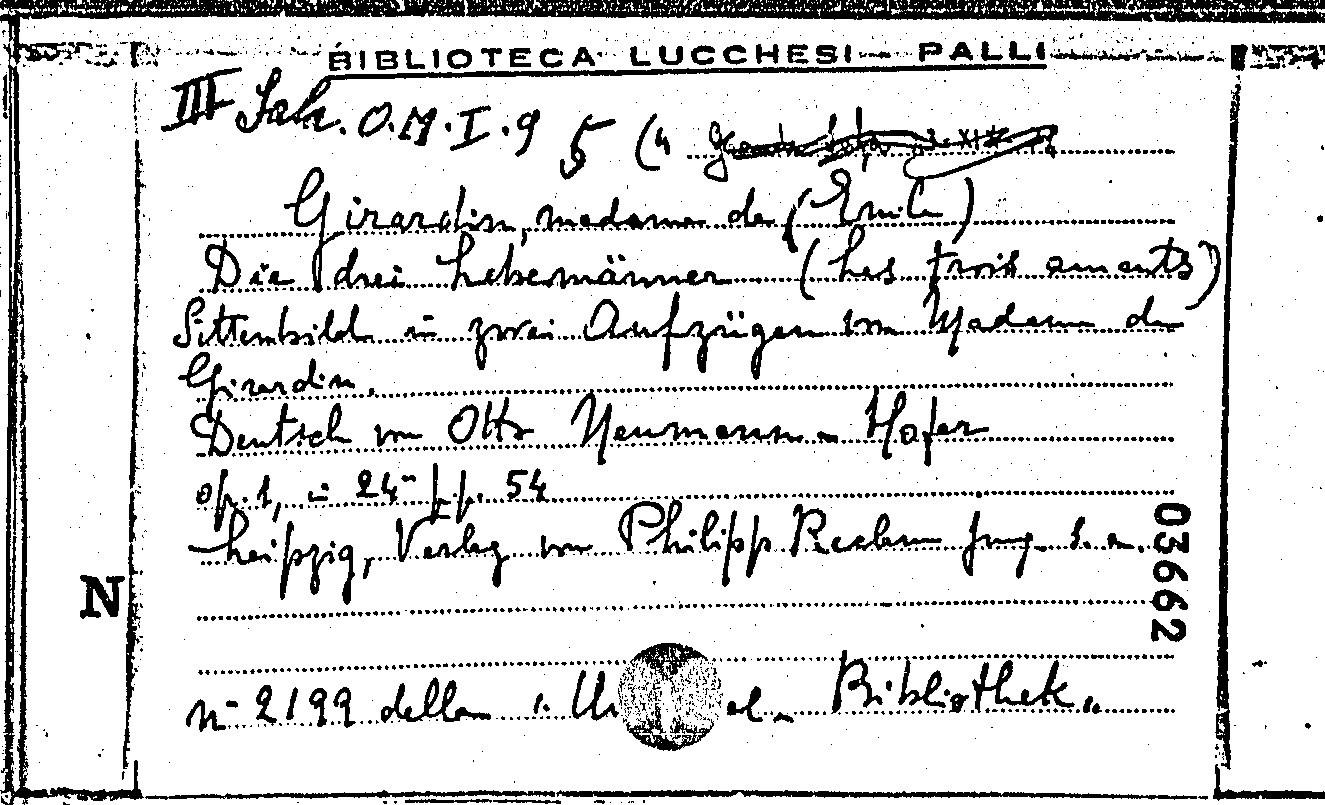 BIBLIOTECA LUCCHESI - PALLI
III Sala. O.M.I.9 5 (4
Girardin, madame de (Emile)
Die drei Liebemänner (Les trois aments)
Sittenbild in zwei Aufzügen von Madame de
Girardin.
Deutsch von Otto Neumann - Hofer
op. 1, in 24° pp. 54
Leipzig, Verlag von Philipp Reclam jung. s. a.
03662
N
n° 2199 della " Bibliothek "